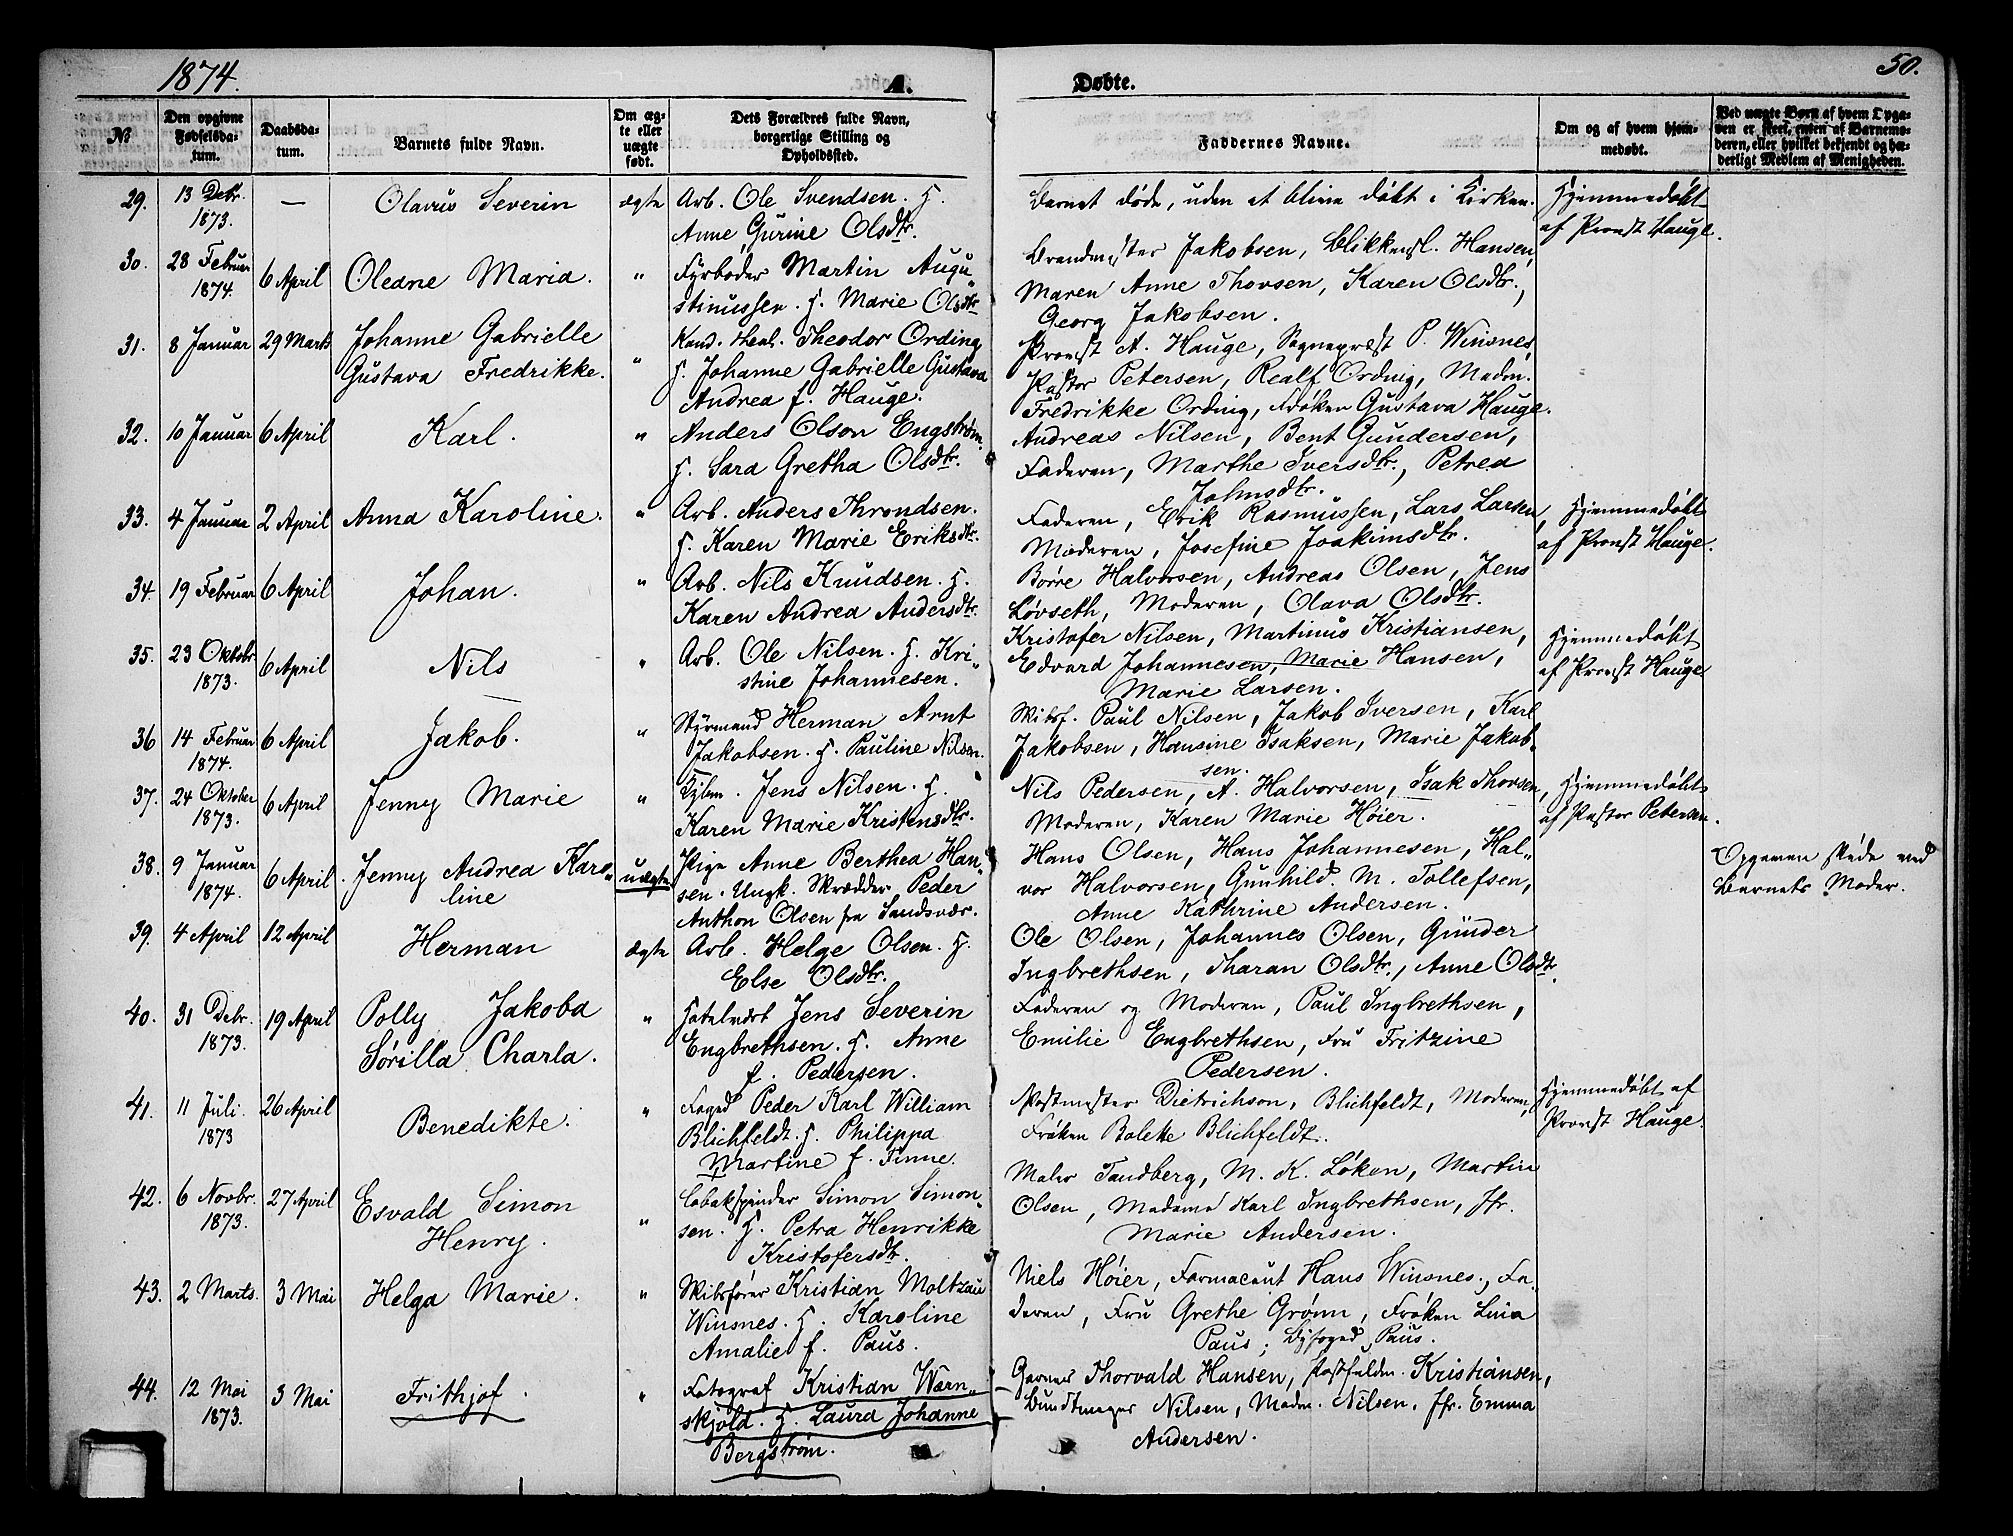 1874.
A.
Døbte.
50.
№
Den opgivne Fødselsdatum.
Daabsdatum.
Barnets fulde Navn.
Om ægte eller uægte født.
Dets Forældres fulde Navn, borgerlige Stilling og Opholdssted.
Faddernes Navne.
Om og af hvem hjemmedøbt.
Ved uægte Børn af hvem Opgaven er skeet, enten af Barnemoderen, eller hvilket bekjendt og hæderligt Medlem af Menigheden.
29. 13 Debr. 1873. — Olavus Severin ægte
Arb. Ole Svendsen. H.
Anne Gurine Olsdtr.
Barnet døde, uden at blive døbt i Kirken.
Hjemmedøbt
af Provst Hauge.
30. 28 Februar 1874. 6 April Oleane Maria. "
Fyrbøder Martin Augu„
stinussen. H. Marie Olsdtr
Brandmester Jakobsen, Blikkensl. Hansen,
Maren Anne Thovsen, Karen Olsdtr.,
Georg Jakobsen.
31. 8 Januar 29 Marts Johanne Gabrielle
Gustava Fredrikke. "
Kand. theol. Theodor Ording
H. Johanne Gabrielle Gustava
Andrea f. Hauge.
Provst A. Hauge, Sognepræst P. Winsnes,
Pastor Petersen, Realf Ording, Madm.
Fredrikke Ording, Frøken Gustava Hauge.
32. 10 Januar 6 April Karl. "
Anders Olson Engstrøm.
H. Sara Gretha Olsdtr.
Andreas Nilsen, Bent Gundersen,
Faderen, Marthe Iversdtr., Petrea
Johnsdtr.
33. 4 Januar 2 April Anna Karoline. "
Arb. Anders Throndsen.
H. Karen Marie Eriksdtr.
Faderen, Erik Rasmussen, Lars Larsen,
Moderen, Josefine Joakimsdtr.
Hjemmedøbt
af Provst Hauge.
34. 19 Februar 6 April Johan. "
Arb. Nils Knudsen. H.
Karen Andrea Andersdtr.
Børre Halvorsen, Andreas Olsen, Jens
Løvseth, Moderen, Olava Olsdtr.
35. 23 Oktobr. 1873. 6 April Nils "
Arb. Ole Nilsen. H. Kri„
stine Johannesen.
Kristofer Nilsen, Martinus Kristiansen,
Edvard Johannesen, Marie Hansen,
Marie Larsen.
Hjemmedøbt
af Provst Hauge
36 14 Februar 1874. 6 April Jakob. "
Styrmand Herman Arnt
Jakobsen. H. Pauline Nilsen.
Skibsf. Paul Nilsen, Jakob Iversen, Karl
Jakobsen, Hansine Isaksen, Marie Jakob„
sen.
37. 24 Oktober 1873. 6 April Jenny Marie "
Jens Nilsen. H.
Karen Marie Kristensdtr.
Nils Pedersen, A. Halvorsen, Isak Thovsen,
Moderen, Karen Marie Høier.
Hjemmedøbt
af Pastor Petersen.
38. 9 Januar 1874. 6 April. Jenny Andrea Karo„
line uægte
Pige Anne Berthea Han„
sen. Ungk. Skrædder Peder
Anthon Olsen fra Sandsvær.
Hans Olsen, Hans Johannesen, Hal„
vor Halvorsen, Gunhild. M. Tollefsen,
Anne Kathrine Andersen.
Opgaven skede ved
Barnets Moder.
39. 4 April 12 April Herman ægte
Arb. Helge Olsen. H.
Else Olsdtr.
Ole Olsen, Johannes Olsen, Gunder
Ingbrethsen, Tharan Olsdtr., Anne Olsdtr.
40. 31 Debr. 1873. 19 April Polly Jakoba
Sørilla Charla. "
Hotelvært Jens Severin
Engbrethsen. H. Anne
f. Pedersen.
Faderen og Moderen, Paul Ingbrethsen,
Emilie Engbrethsen, Fru Fritzine
Pedersen.
41. 11 Juli. 1873 26 April Benedikte. "
Foged Peder Karl William
Blichfeldt. H. Philippa
Martine f. Finne.
Postmester Dietrichson, Blichfeldt, Moderen,
Frøken Bolette Blichfeldt.
Hjemmedøbt af
Provst Hauge.
42. 6 Novbr. 1873. 27 April Esvald Simon
Henry. "
Tobakspinder Simon Simon„
sen. H. Petra Henrikke
Kristofersdtr.
Maler Tandberg, M. K. Løken, Martin
Olsen, Madame Karl Ingbrethsen, Jfr.
Marie Andersen.
43. 2 Marts. 3 Mai Helga Marie. "
Skibsfører Kristian Moltzau
Winsnes. H. Karoline
Amalie f. Paus.
Niels Høier, Farmaceut Hans Winsnes., Fa„
deren, Fru Grethe Grønn, Frøken Lina
Paus; Byfoged Paus.
44. 12 Mai 1873. 3 Mai Frithjof. "
Fotograf Kristian Wærn„
skjold. H. Laura Johanne
Bergstrøm.
Garver Thorvald Hansen, Kristiansen,
Bundtmager Nilsen, Madm. Nilsen, Jfr. Emma
Andersen.